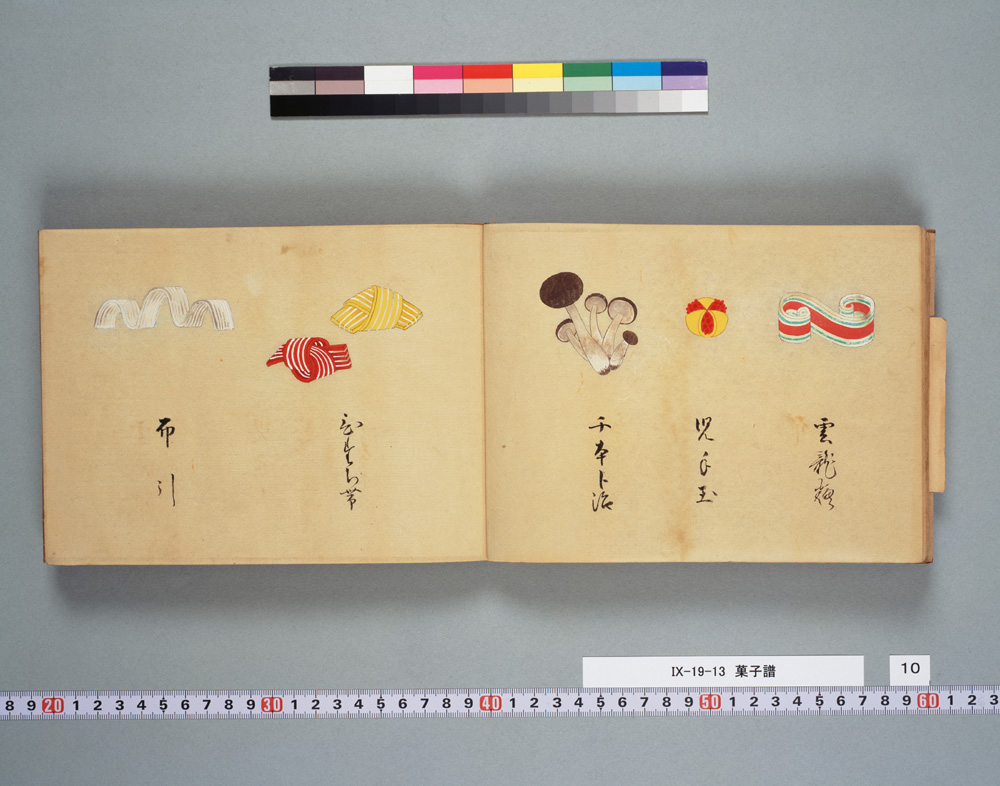 雲龍
児手玉
千本卜治
帯
布引
IX-19-13 菓子譜
10
8 9 20 1 2 3 4 5 6 7 8 9 30 1 2 3 4 5 6 7 8 9 40 1 2 3 4 5 6 7 8 9 50 1 2 3 4 5 6 7 8 9 60 1 2 3